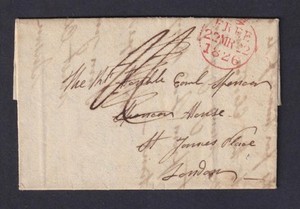 FREE
22MR22
1826
The Rt Honble Earl Spencer
Spencer House
St James Place
London